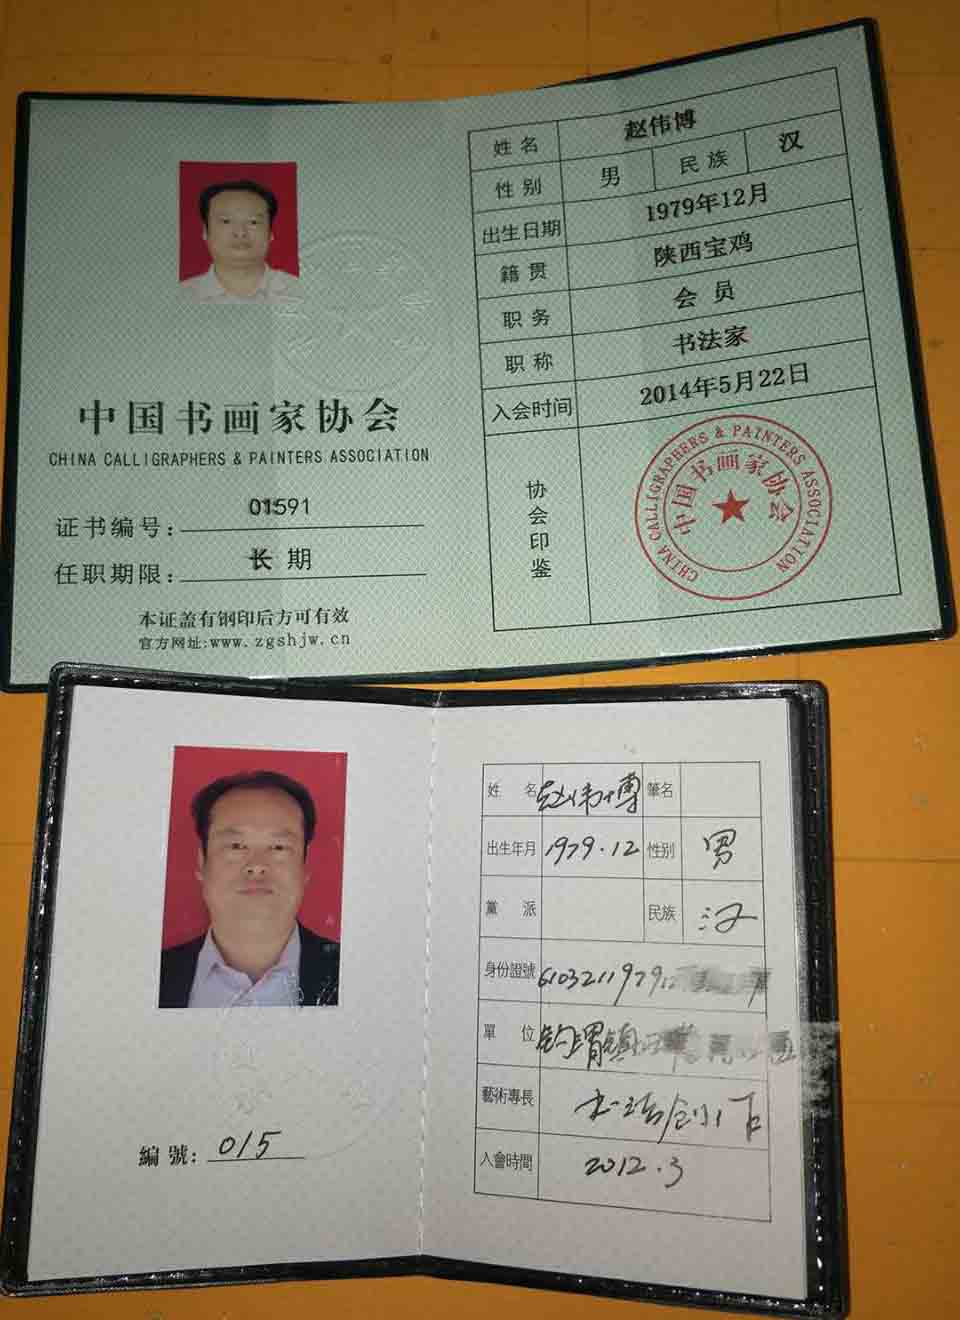 中国书画家协会
CHINA CALLIGRAPHERS & PAINTERS ASSOCIATION
证书编号: 01591
任职期限: 长期
本证盖有钢印后方可有效
官方网址:www.zgshjw.cn
姓名 赵伟博
性别 男 民族 汉
出生日期 1979年12月
籍贯 陕西宝鸡
职务 会员
职称 书法家
入会时间 2014年5月22日
协会印鉴
CHINA CALLIGRAPHERS & PAINTERS ASSOCIATION
中国书画家协会
編號: 015
姓名 赵伟博 筆名
出生年月 1979.12 性别 男
黨派 民族 汉
身份證號 610321197912
單位 钓渭镇
藝術專長 书法创作
入會時間 2012.3